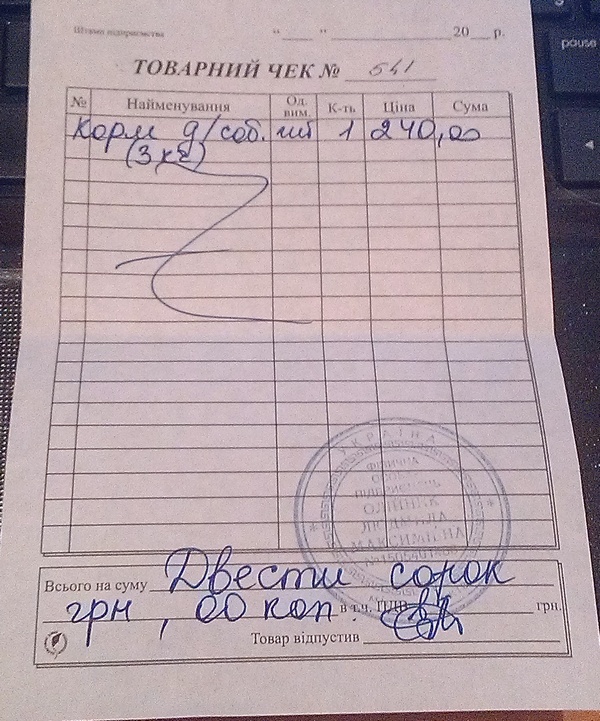 Штамп підприємства “ ” 20 р.
ТОВАРНИЙ ЧЕК № 541
№ Найменування Од. вим. К-ть Ціна Сума
Корм д/соб. шт 1 240,00
(3 кг)
УКРАЇНА
ФІЗИЧНА
ОСОБА
ПІДПРИЄМЕЦЬ
ОЛІЙНИК
ЛЮДМИЛА
МАКСИМІВНА
Всього на суму Двести сорок
грн, 00 коп. в т.ч. ПДВ грн.
Товар відпустив
pause